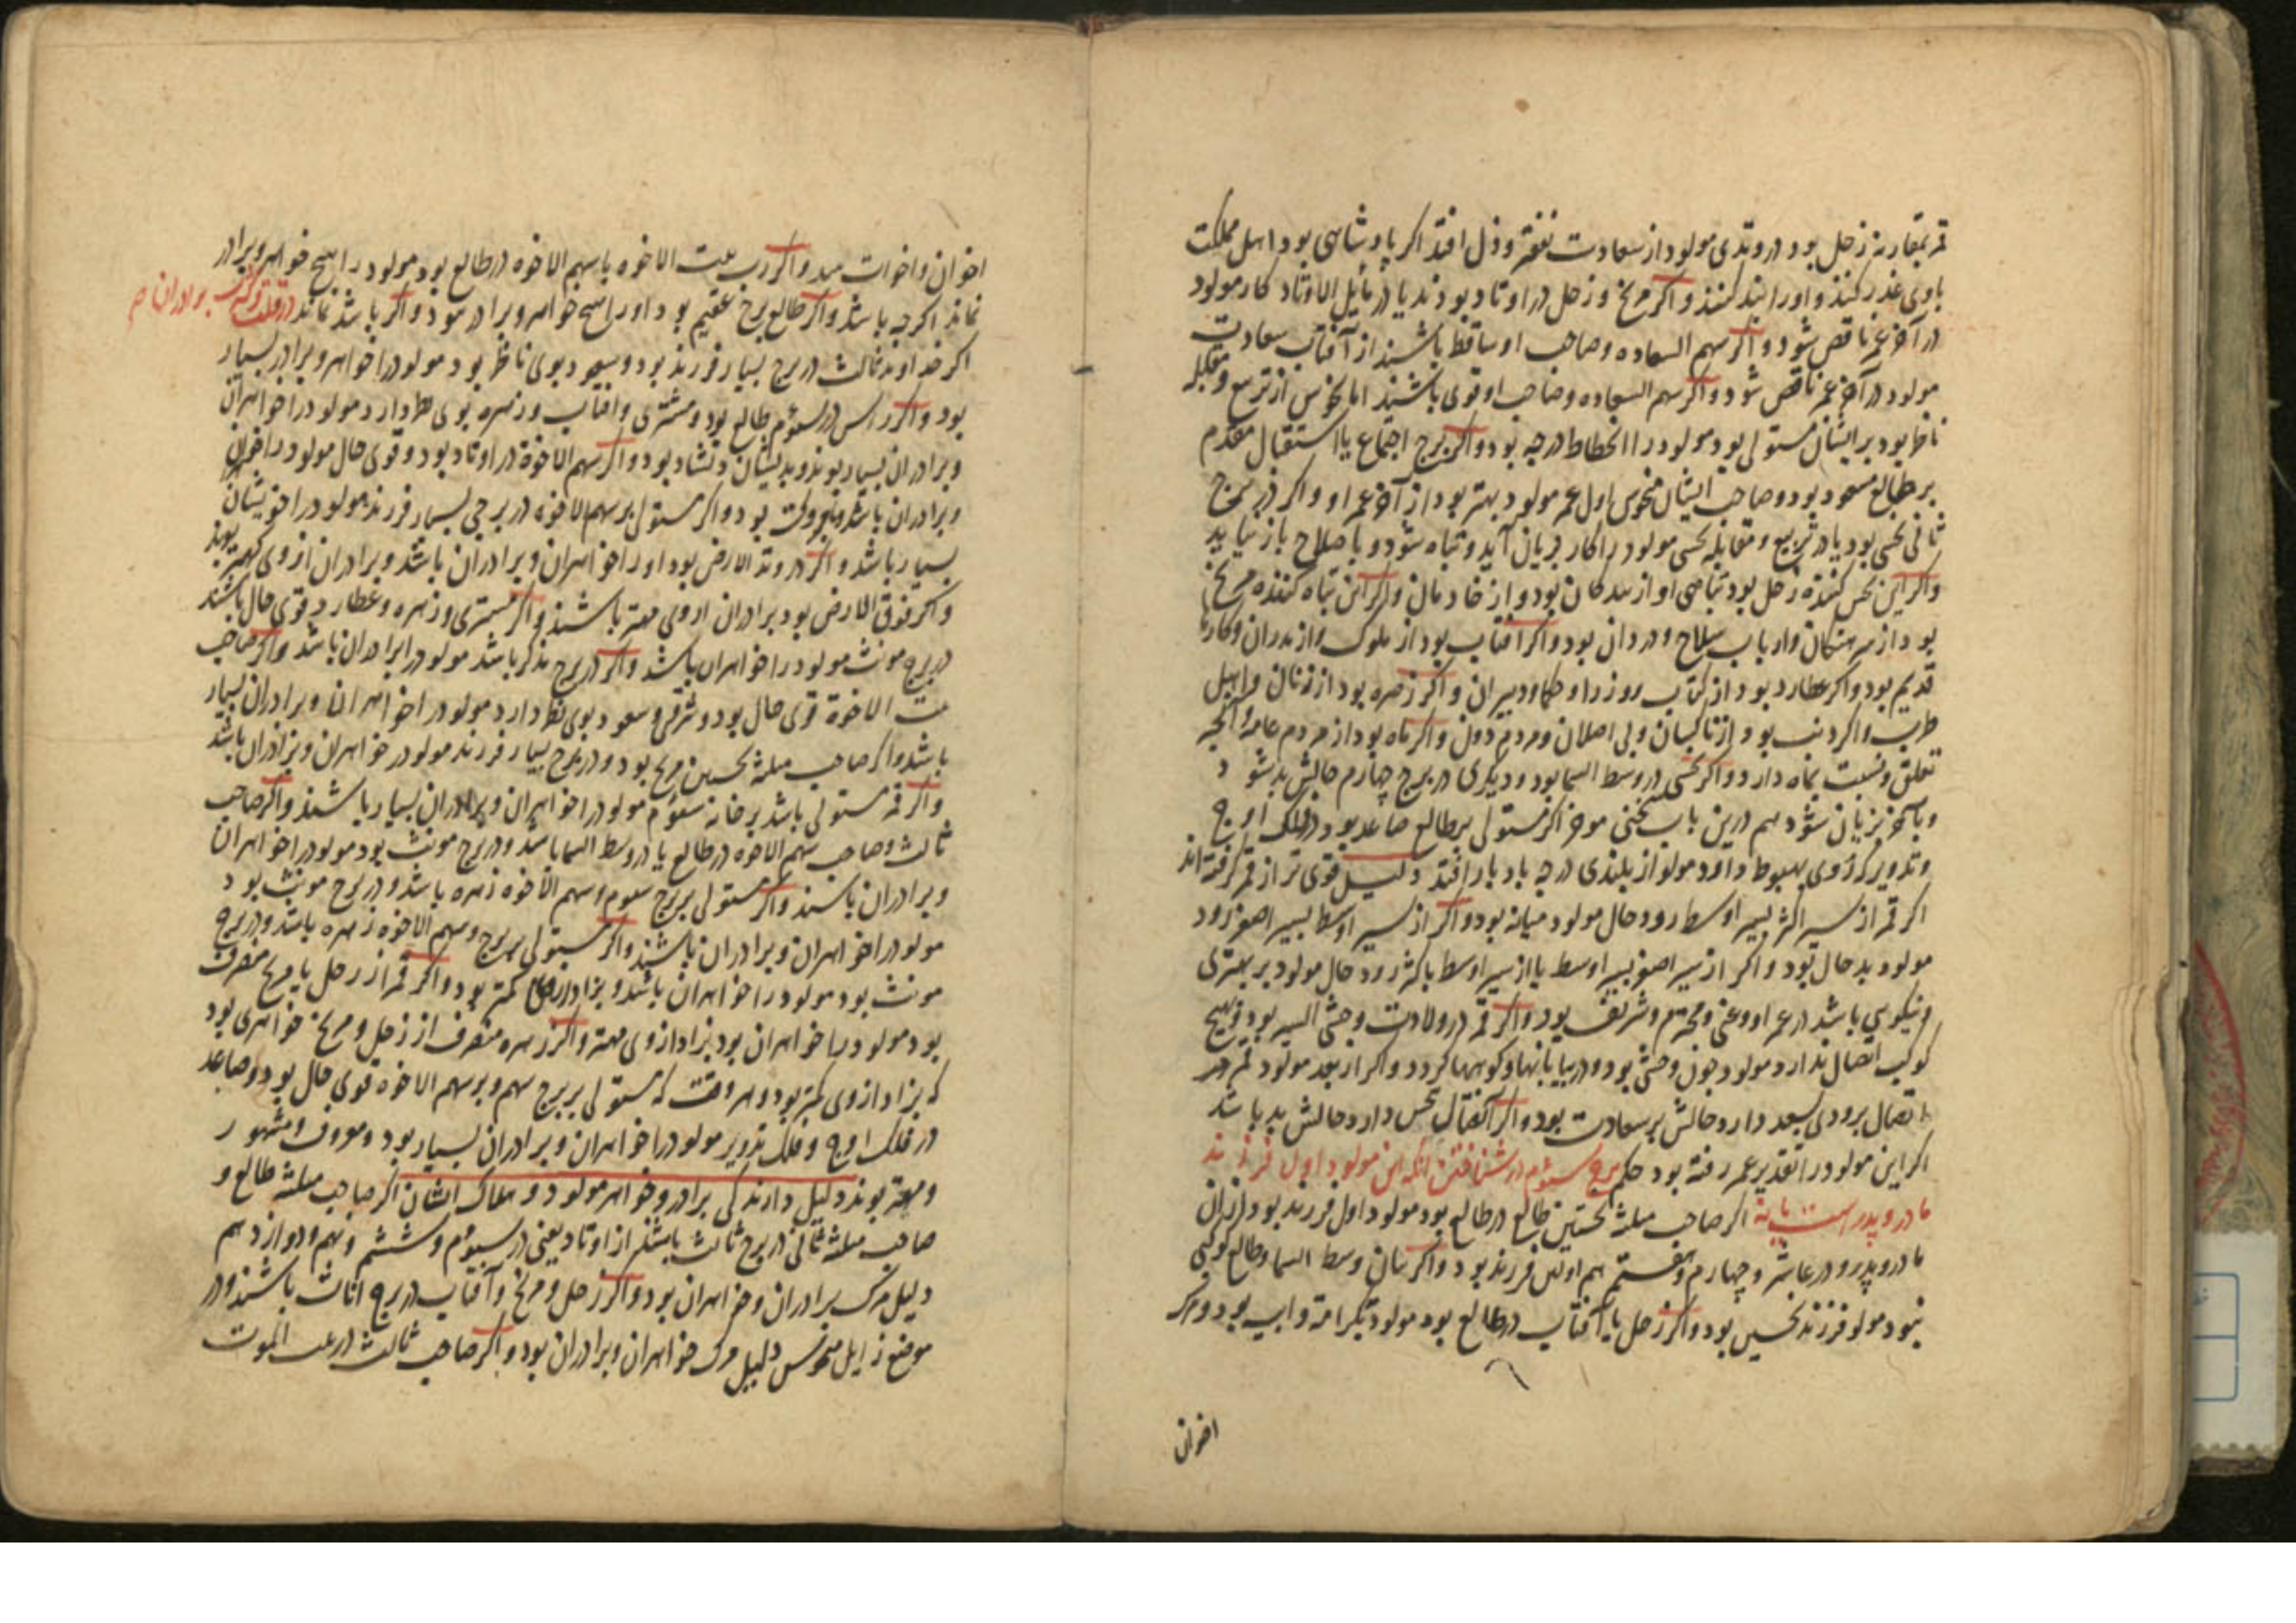 قمر بمقارنه زحل بود در وتدی مولود از سعادت بیفتد و ذل افتد اکر پادشاهی بود اهل مملکت
باوی غدر کنند و او را بند کنند و اکر مریخ و زحل در اوتاد بودند یا در مایل الاوتاد کار مولود
در آخر عمر ناقص شود و اکر سهم السعاده و صاحب او ساقط باشند از آفتاب سعادت
مولود در آخر عمر ناقص شود و اکر سهم السعاده و صاحب او قوی باشند اما نحوس از تربیع و مقابله
ناظر بود بر ایشان مستولی بود مولود را انحطاط درجه بود و اکر برج اجتماع یا استقبال مقدم
بر طالع مسعود بود و صاحب ایشان منحوس اول عمر مولود بهتر بود از آخر عمر او و اکر در برج
ثانی نحسی بود یا در تربیع و مقابله نحسی مولود را کار بزیان آید و تباه شود و باصلاح باز نیاید
و اکر این نحس کننده زحل بود تباهی او از بندکان بود و از خادمان و اکر این تباه کننده مریخ
بود از سرهنکان و ارباب سلاح و دزدان بود و اکر آفتاب بود از ملوک و از پدران و کارها
قدیم بود و اکر عطارد بود از کتاب و وزرا و حکما و دبیران و اکر زهره بود از زنان و اهل
طرب و اکر ذنب بود از ناکسان و بی اصلان و مردم دون و اکر ماه بود از مردم عامه و آنچه
تعلق و نسبت بماه دارد و اکر نحسی در وسط السما بود و دیکری در برج چهارم حالش بد شود
و بآخر بزیان شود هم درین باب سخنی موخر اکر مستولی بر طالع صاعد بود در فلک اوج
و تدویر کز وی بهبوط دارد مولود از بلندی درجه بادبار افتد دلیل قوی تر از قمر کرفته اند
اکر قمر از سیر اکثر بسیر اوسط رود حال مولود میانه بود و اکر از سیر اوسط بسیر اصغر رود
مولود بد حال بود و اکر از سیر اصغر بسیر اوسط یا از سیر اوسط باکثر رود حال مولود بر بهتری
و نیکویی باشد در عمر او و غنی و محترم و شریف بود و اکر قمر در ولادت وحشی السیر بود و هیچ
کوکب اتصال ندارد مولود چون وحشی بود و در بیابانها و کوهها کردد و اکر از بعد مولود قمر
اتصال بزودی بسعد دارد حالش بر سعادت بود و اکر اتصال نحس دارد حالش بد باشد
اکر این مولود را تقدیر عمر رفته بود حکم برج سیوم در شناختن آنکه این مولود اول فرزند
مادر و پدر است یا نه اکر صاحب مثلثه نخستین طالع در طالع بود مولود اول فرزند بود از آن
مادر و پدر و در عاشر و چهارم و هفتم هم اولین فرزند بود و اکر میان وسط السما و طالع کوکبی
نبود مولود فرزند نخستین بود و اکر زحل یا آفتاب در طالع بود مولود بکرامه و ابیه بود و مرک
اخوان
اخوان و اخوات بیند و اکر رب بیت الاخوه یا سهم الاخوه در طالع بود مولود را هیچ خواهر و برادر
نماند اکرچه باشد و اکر طالع برج عقیم بود او را هیچ خواهر و برادر نبود و اکر باشد نماند در قلت و کثرت برادران
اکر خداوند ثالث در برج بسیار فرزند بود و سعود بوی ناظر بود مولود را خواهر و برادر بسیار
بود و اکر راس در سیوم طالع بود و مشتری و آفتاب و زهره بوی نظر دارد مولود را خواهران
و برادران بسیار بوند و بدیشان دلشاد بود و اکر سهم الاخوة در اوتاد بود و قوی حال مولود را خواهران
و برادران باشد و اکر مستولی بر سهم الاخوه در برجی بسیار فرزند مولود را خویشان
بسیار باشد و اکر در وتد الارض بود او را خواهران و برادران باشد و برادران از وی کهتر بوند
و اکر فوق الارض بود برادران از وی مهتر باشند و اکر مشتری و زهره و عطارد قوی حال باشند
در برج مونث مولود را خواهران باشد و اکر در برج مذکر باشد مولود را برادران باشد و اکر صاحب
بیت الاخوة قوی حال بود و شرقی و سعود بوی نظر دارد مولود را خواهران و برادران بسیار
باشد و اکر صاحب مثلثه نخستین مریخ بود و در برج بسیار فرزند مولود را خواهران و برادران باشد
و اکر قمر مستولی باشد بر خانه سیوم مولود را خواهران و برادران بسیار باشند و اکر صاحب
ثالث و صاحب سهم الاخوه در طالع یا در وسط السما باشد و در برج مونث بود مولود را خواهران
و برادران باشند و اکر مستولی بر برج سیوم و سهم الاخوه زهره باشد و در برج مونث بود
مولود را خواهران و برادران باشند و اکر مستولی بر برج و سهم الاخوه زهره باشد و در برج
مونث بود مولود را خواهران باشد و بزاد کمتر بود و اکر قمر از زحل یا مریخ منصرف
بود مولود را خواهران بود بزاد از وی مهتر و اکر زهره منصرف از زحل و مریخ خواهری بود
که بزاد از وی کمتر بود و هر وقت که مستولی بر برج سیم و بر سهم الاخوه قوی حال بود و صاعد
در فلک اوج و فلک تدویر مولود را خواهران و برادران بسیار بود و معروف و مشهور
و مهتر بوند دلیل دارندکی برادر و خواهر مولود و هلاک ایشان اکر صاحب مثلثه طالع و
صاحب مثلثه ثانی در برج ثالث باشند از اوتاد یعنی در سیوم و ششم و نهم و دوازدهم
دلیل مرک برادران و خواهران بود و اکر زحل و مریخ و آفتاب در برج اناث باشند و در
موضع زایل منحوس دلیل مرک خواهران و برادران بود و اکر صاحب ثالث در بیت الموت